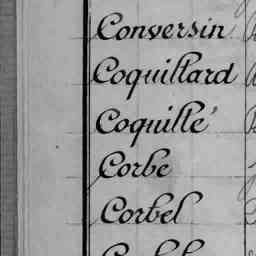 Conversin
Coquillard
Coquillé
Corbe
Corbel